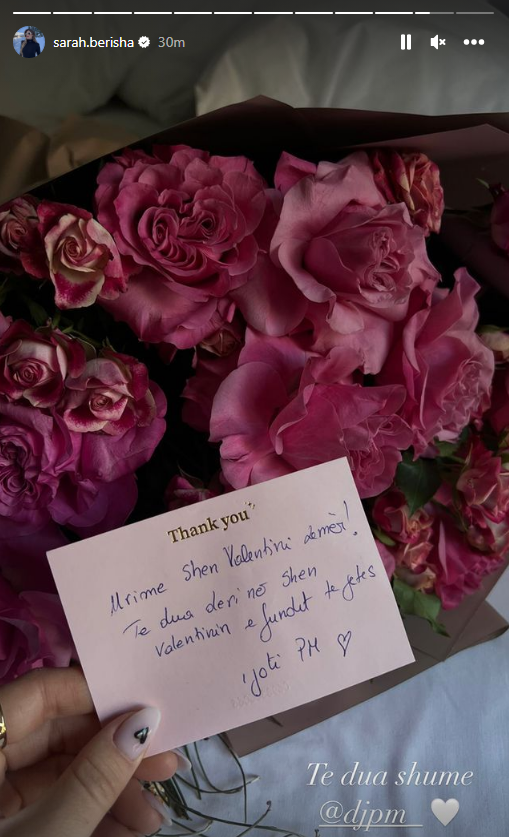 sarah.berisha 30m
Thank you
Urime Shen Valentini zemër!
Te dua deri në Shen
Valentinin e fundit te jetes
i joti PM ♡
Te dua shume
@djpm_ 🤍